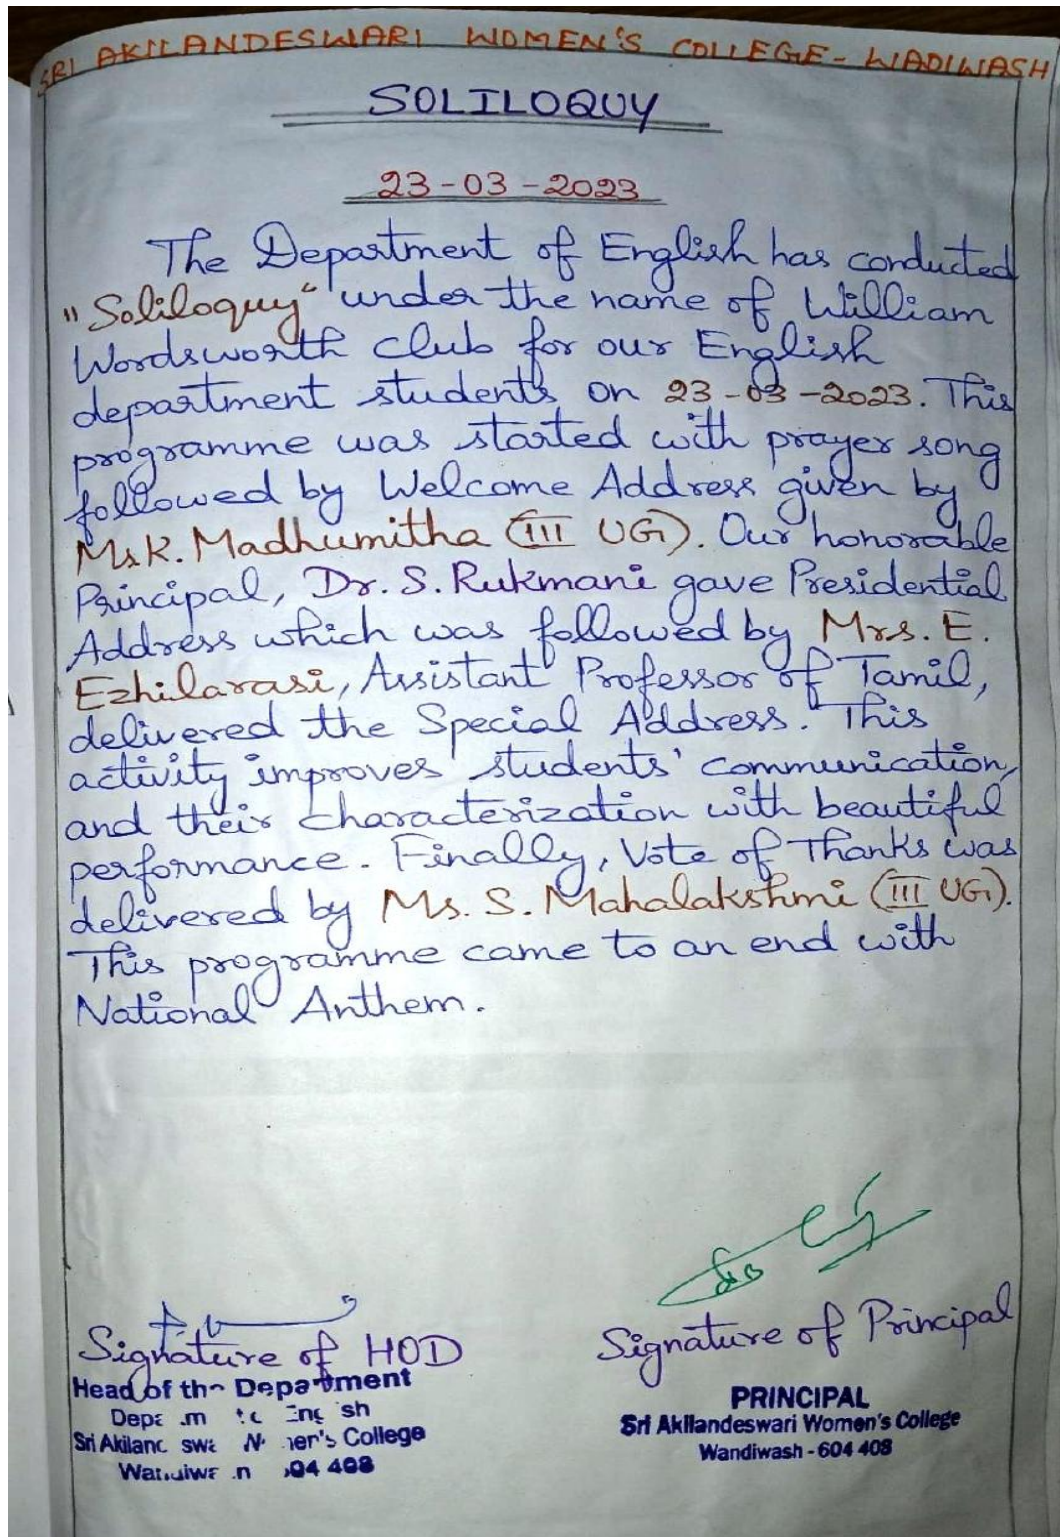 SRI AKILANDESWARI WOMEN'S COLLEGE - WADIWASH
SOLILOQUY
23-03-2023
The Department of English has conducted
"Soliloquy" under the name of William
Wordsworth club for our English
department students on 23-03-2023. This
programme was started with prayer song
followed by Welcome Address given by
Ms K. Madhumitha (III UG). Our honorable
Principal, Dr. S. Rukmani gave Presidential
Address which was followed by Mrs. E.
Ezhilarasi, Assistant Professor of Tamil,
delivered the Special Address. This
activity improves students' communication,
and their characterization with beautiful
performance. Finally, Vote of Thanks was
delivered by Ms. S. Mahalakshmi (III UG).
This programme came to an end with
National Anthem.
Signature of HOD
Head of the Department
Sri College
408
Signature of Principal
PRINCIPAL
Sri Akilandeswari Women's College
Wandiwash - 604 408